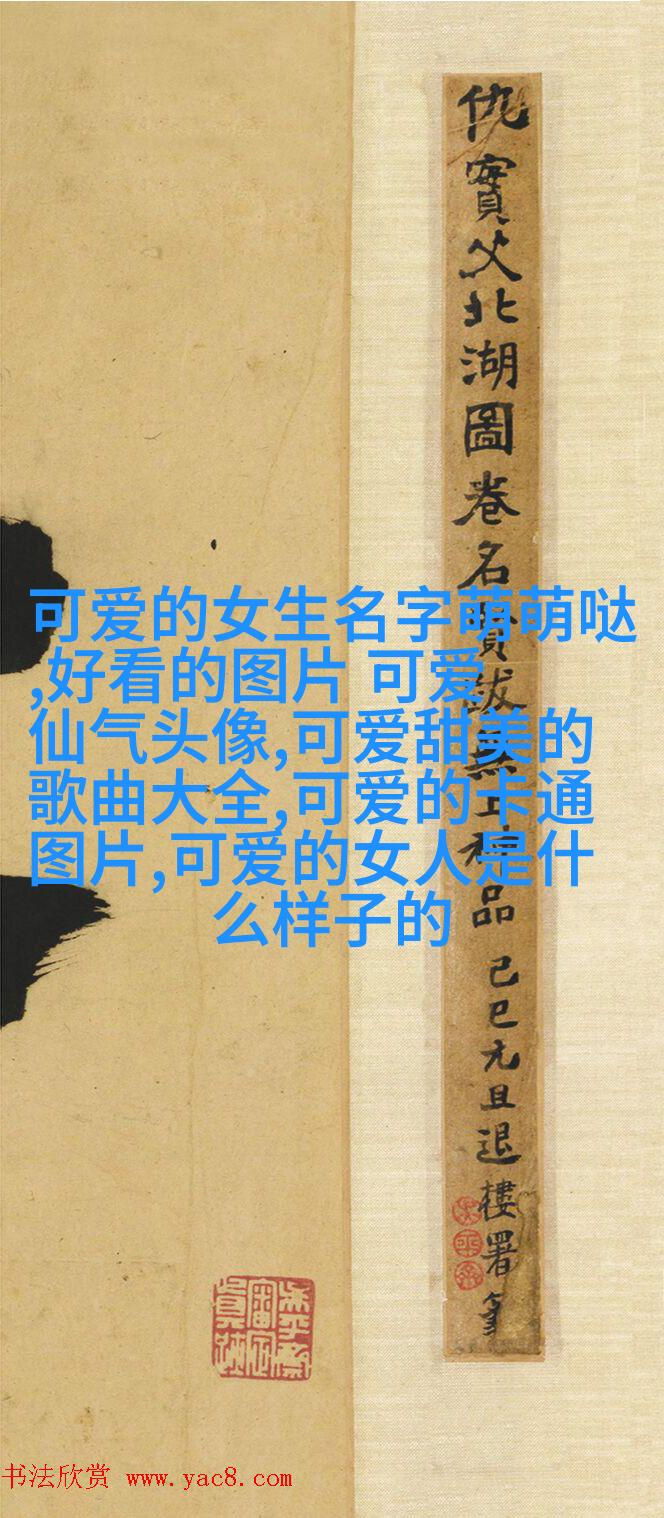 仇實父北湖圖卷名賢跋無上神品
己巳元旦退樓署耑
可爱的女生名字萌萌哒
,好看的图片 可爱
仙气头像,可爱甜美的
歌曲大全,可爱的卡通
图片,可爱的女人是什
么样子的
书法欣赏 www.yac8.com